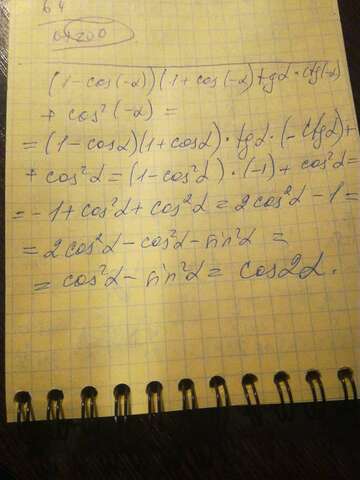 64
(1-cos(-α))(1+cos(-α)tgα·ctg(-α)
+ cos²(-α) =
= (1-cosα)(1+cosα)·tgα·(-ctgα)+
+ cos²α = (1-cos²α)·(-1)+cos²α=
= -1+cos²α+cos²α = 2cos²α-1=
= 2cos²α-cos²α-sin²α =
= cos²α-sin²α = cos2α.